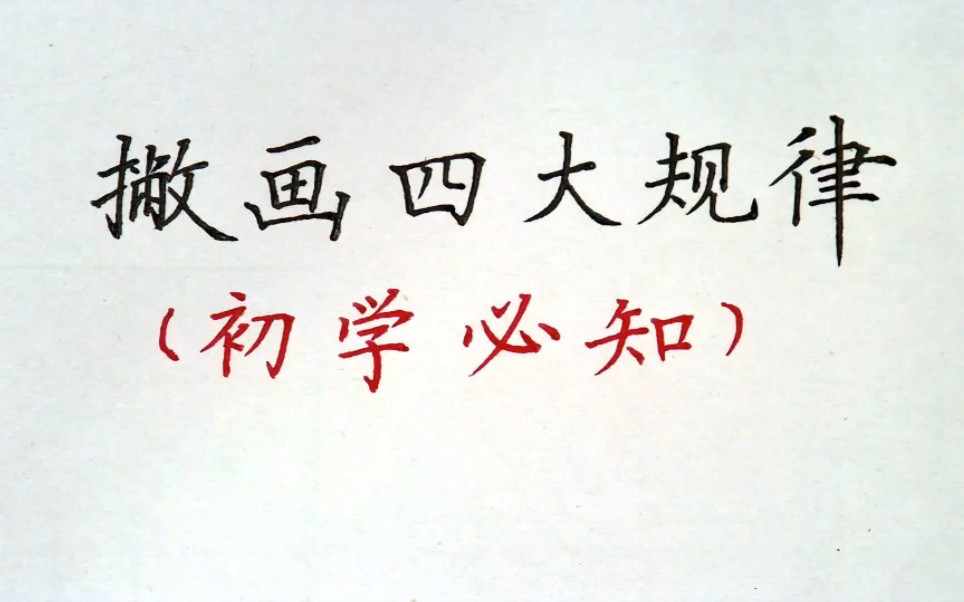 撇画四大规律
(初学必知)